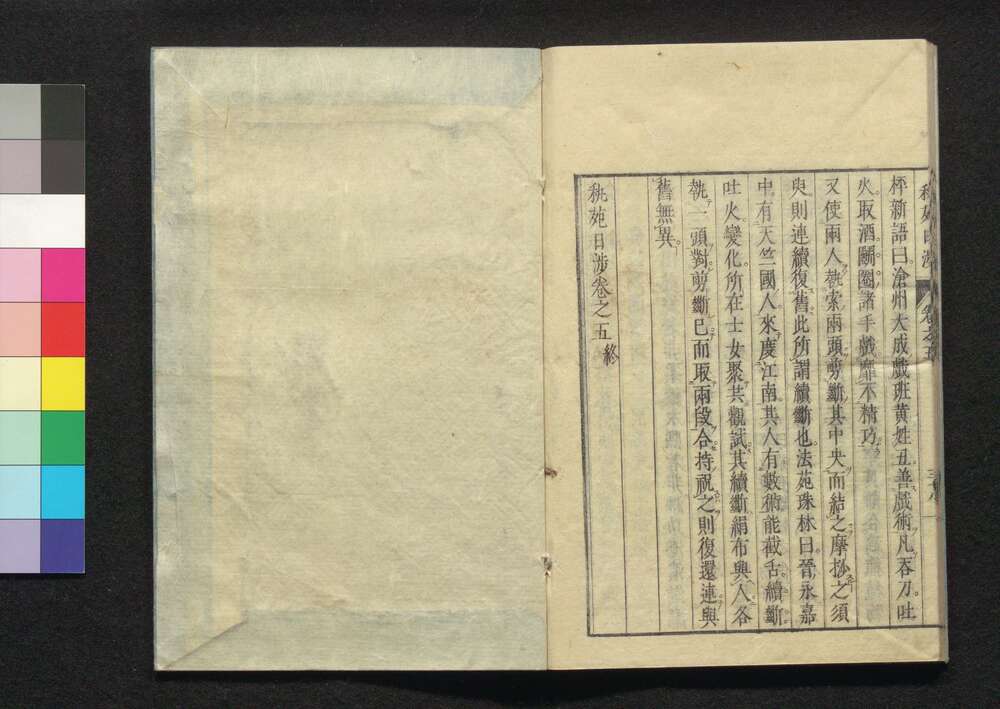 秇苑日渉 卷之五
枰新語曰滄州大成戲班黄姓丑善戲術凡吞刀吐
火取酒鬭圈諸手戲靡不精巧
又使兩人執索兩頭剪斷其中央而結之摩抄之須
臾則連續復舊此所謂續斷也法苑珠林曰晉永嘉
中有天竺國人來慶江南其人有數術能截舌續斷
吐火變化所在士女聚共觀試其續斷絹布與人各
執一頭對剪斷已而取兩段合持祝之則復還連與
舊無異
秇苑日渉卷之五終